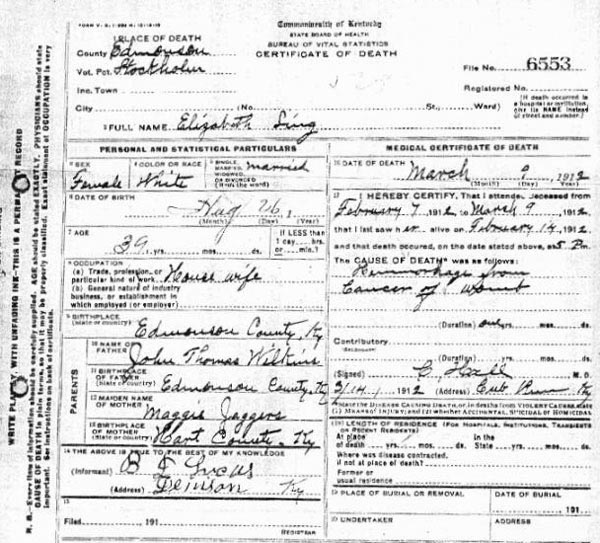 Commonwealth of Kentucky
STATE BOARD OF HEALTH
BUREAU OF VITAL STATISTICS
CERTIFICATE OF DEATH
PLACE OF DEATH
County Edmonson
Vot. Pct. Stockholm
Inc. Town
City (No. St., Ward)
File No. 6553
Registered No.
(If death occurred in a hospital or institution, give its NAME instead of street and number.)
FULL NAME Elizabeth Sing
PERSONAL AND STATISTICAL PARTICULARS
SEX Female
COLOR OR RACE White
SINGLE, MARRIED, WIDOWED, OR DIVORCED (Write the word) married
DATE OF BIRTH 26, 1
(Month) (Day) (Year)
AGE 39 yrs. mos. ds.
If LESS than 1 day, hrs. or min.?
OCCUPATION
(a) Trade, profession, or particular kind of work House wife
(b) General nature of industry business, or establishment in which employed (or employer)
BIRTHPLACE (State or country) Edmonson County, Ky
PARENTS
10 NAME OF FATHER John Thomas Wilkins
11 BIRTHPLACE OF FATHER (State or country) Edmonson County, Ky
12 MAIDEN NAME OF MOTHER Maggie Jaggers
13 BIRTHPLACE OF MOTHER (State or country) Hart County, Ky
14 THE ABOVE IS TRUE TO THE BEST OF MY KNOWLEDGE
(Informant) Lucas
(Address) Ky
15
Filed 191
REGISTRAR
MEDICAL CERTIFICATE OF DEATH
16 DATE OF DEATH March 9, 1912
(Month) (Day) (Year)
17 I HEREBY CERTIFY, That I attended deceased from
February 7, 1912 to March 9, 1912
that I last saw her alive on February 14, 1912
and that death occurred, on the date stated above, at 5 P.m.
The CAUSE OF DEATH was as follows:
Hemorrhage from
Cancer of womb
(Duration) yrs. mos. ds.
Contributory
(Duration) yrs. mos. ds.
(Signed) M. D.
1912 (Address) Cub Run Ky
State the DISEASE CAUSING DEATH, or in deaths from VIOLENT CAUSES, state (1) MEANS OF INJURY; and (2) whether ACCIDENTAL, SUICIDAL OR HOMICIDAL
LENGTH OF RESIDENCE (FOR HOSPITALS, INSTITUTIONS, TRANSIENTS OR RECENT RESIDENTS)
At place of death yrs. mos. ds. In the State yrs. mos. ds.
Where was disease contracted, if not at place of death?
Former or usual residence
19 PLACE OF BURIAL OR REMOVAL
DATE OF BURIAL
191
20 UNDERTAKER
ADDRESS
WRITE PLAINLY, WITH UNFADING INK—THIS IS A PERMANENT RECORD
N. B.—Every item of information should be carefully supplied. AGE should be stated EXACTLY. PHYSICIANS should state
CAUSE OF DEATH in plain terms, so that it may be properly classified. Exact statement of OCCUPATION is very
important. See instructions on back of certificate.